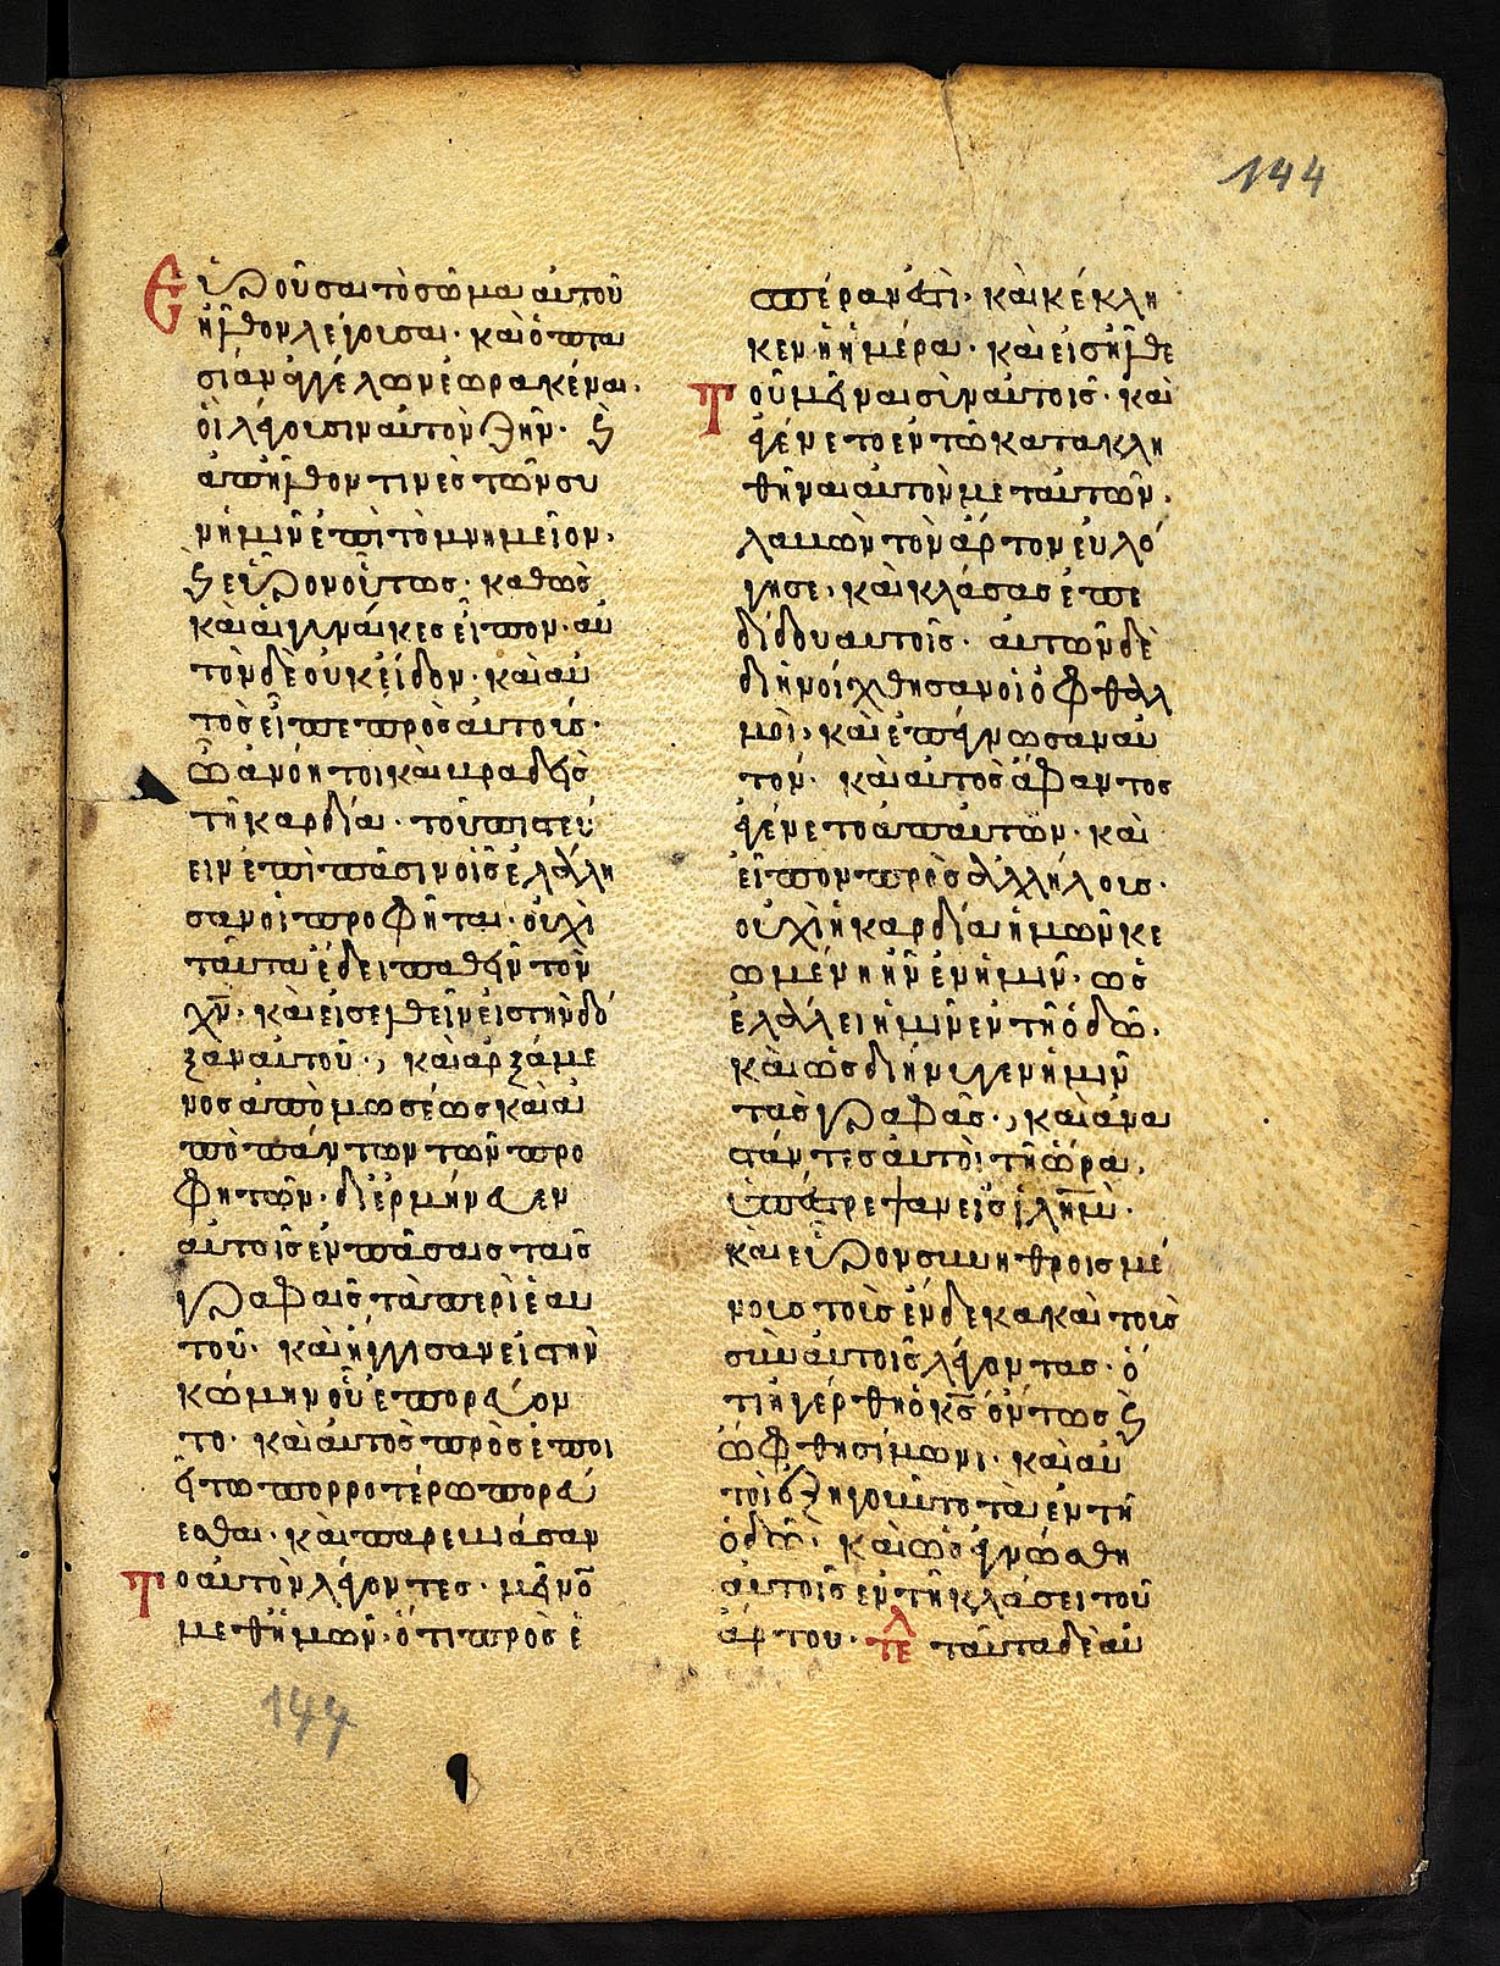 144
Εὑροῦσαι τὸ σῶμα αὐτοῦ
ἦλθον λέγουσαι· καὶ ὀπτα
σίαν ἀγγέλων ἑωρακέναι·
οἳ λέγουσιν αὐτὸν ζῆν· ϗ
ἀπῆλθον τινὲς τῶν συ
νημῖν ἐπὶ τὸ μνημεῖον·
ϗ εὗρον οὕτως· καθὼς
καὶ αἱ γυναίκες εἶπον· αυ
τὸν δὲ οὐκ εἶδον· καὶ αυ
τὸς εἶπε πρὸς αὐτούς·
ὦ ἀνόητοι καὶ βραδεῖς
τῆ καρδία· τοῦ πιστεύ
ειν ἐπὶ πᾶσιν οἷς ἐλάλη
σαν οἱ προφῆται· οὐχὶ
ταῦτα ἔδει παθεῖν τὸν
χν̅· καὶ εἰσελθεῖν εἰς τὴν δό
ξαν αὐτοῦ·, καὶ αρξάμε
νος ἀπὸ μωσέως καὶ ἀ
πὸ πάντων τῶν προ
φητῶν· διερμήνευεν
αὐτοῖς ἐν πάσαις ταῖς
γραφαῖς τὰ περὶ ἑαυ
τοῦ· καὶ ἤγγισαν εἰς τὴν
κώμην οὗ ἐπορεύον
το· καὶ αὐτὸς προσεποι
εῖτο πορροτέρω πορεύ
εσθαι· καὶ παρεβιάσαν
Το αὐτὸν λέγοντες· μεῖνο̅
μεθημῶν· ὅτι πρὸς ἑ
144
σπέραν ἐστὶ· καὶ κέκλη
κεν ἡ ημέρα· καὶ εἰσῆλθε
Τοῦ μεῖναι σὺν αὐτοῖς· καὶ
ἐγένετο ἐν τῶ κατακλη
θῆναι αὐτὸν μεταυτῶν·
λαβὼν τὸν ἄρτον εὐλό
γησε· καὶ κλάσας ἐπε
δίδου αυτοῖς· αὐτῶν δὲ
διηνοίχθησαν οἱ ὀφθαλ
μοὶ· καὶ ἐπέγνωσαν αυ
τόν· καὶ αυτὸς ἄφαντος
ἐγένετο ἀπαυτῶν· καὶ
εἶπον πρὸς ἀλλήλους·
οὐχὶ ἡ καρδία ἡμῶν κε
ωμένη ἦν ἐν ἡμῖν· ὡς
ἐλάλει ἡμῖν ἐν τῆ ὁδῶ·
καὶ ὡς διήνυγεν ἡμῖν
τὰς γραφάς·, καὶ ἀνα
στάντες αὐτὸὶ τῆ ὥρα·
ὑπέστρεψαν εἰς ἱλημ̅·
καὶ εὗρον συνηθροισμέ
νους τοὺς ἕνδεκα καὶ τοὺς
σὺν αὐτοῖς λέγοντας· ὅ
τι ἠγέρθη ὁ κς̅ ὄντως ϗ
ὤφθη σίμωνι· καὶ αυ
τοὶ ἐξηγοῦντο τὰ ἐν τῆ
ὁδῶ· καὶ ὡς ἐγνώσθη
αὐτοῖς ἐν τῆ κλάσει τοῦ
ἄρτου· τελ ταῦτα δὲ αυ